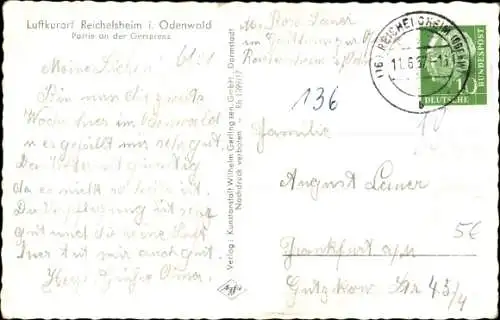 Luftkurort Reichelsheim i. Odenwald
Partie an der Gersprenz
Meine Lieben!
Bin nun die zweite
Woche hier im Odenwald
es gefällt mir sehr gut.
Das Wetter ist günstig
da es nicht so heiß ist.
Die Verpflegung ist sehr
gut und die reine Luft
hier tut mir auch gut.
Herzl. Grüße Oma.
Verlag: Kunstanstalt Wilhelm Gerling sen. GmbH., Darmstadt
Nachdruck verboten
Agfa
Abs. Rosa Lauer
im
Reichelsheim i. Odw.
(16) REICHELSHEIM (ODENW)
11.6.57
b
DEUTSCHE BUNDESPOST
10
136
Familie
August Lauer
Frankfurt a/M
Gutzkow Str 45/4
5€